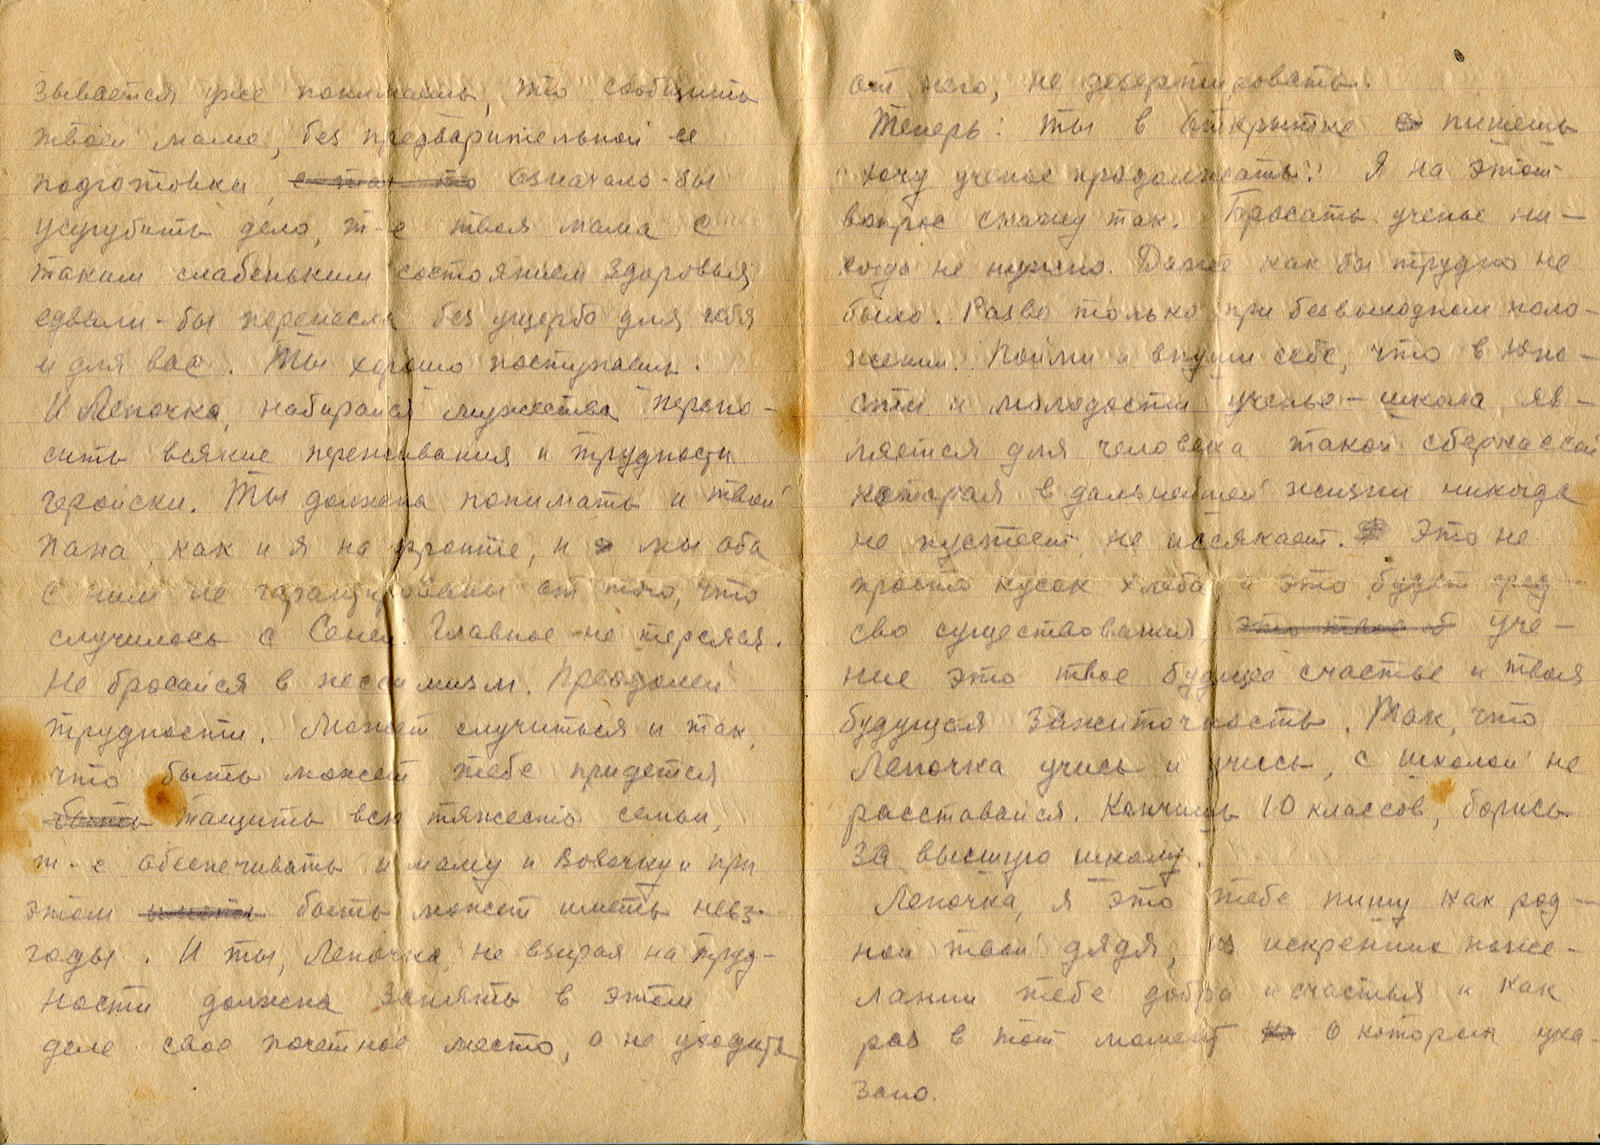 зывается уже понимаешь, что сообщить
твоей маме, без предварительной ее
подготовки, с так что означало-бы
усугубить дело, т-е твоя мама с
таким слабеньким состоянием здоровья
едвали-бы перенесла без ущерба для себя
и для вас. Ты хорошо поступаешь.
И Леночка, набирайся мужества перено-
сить всякие переживания и трудности
геройски. Ты должна понимать и твой
папа, как и я на фронте, и мы оба
с ним не гарантированы от того, что
случилось с Сеней. Главное не теряйся.
Не бросайся в пессимизм. Преодолей
трудности. Может случиться и так,
что быть может тебе придется
быть тащить всю тяжесть семьи,
т-е обеспечивать и маму и Вовочку и при
этом иметь быть может иметь невз-
годы. И ты, Леночка, не взирая на труд-
ности должна занять в этом
деле свое почетное место, а не уходить
от него, не дезертировать.
Теперь: ты в открытке пишешь
"хочу ученье продолжать". Я на этот
вопрос скажу так. Бросать ученье ни-
когда не нужно. Даже как бы трудно не
было. Разве только при безвыходном поло-
жении. Пойми и внуши себе, что в юно-
сти и молодости ученье - школа яв-
ляется для человека такой сберкассой
которая в дальнейшей жизни никогда
не пустеет, не иссякает. Это не
просто кусок хлеба и это будет сред-
сво существования это твое об уче-
ние это твое будущее счастье и твоя
будущая зажиточность. Так, что
Леночка учись и учись, с школой не
расставайся. Кончишь 10 классов, борись
за высшую школу.
Леночка, я это тебе пишу как род-
ной твой дядя, из искренних поже-
лании тебе добра и счастья и как
раз в тот момент ко о котором ука-
зано.